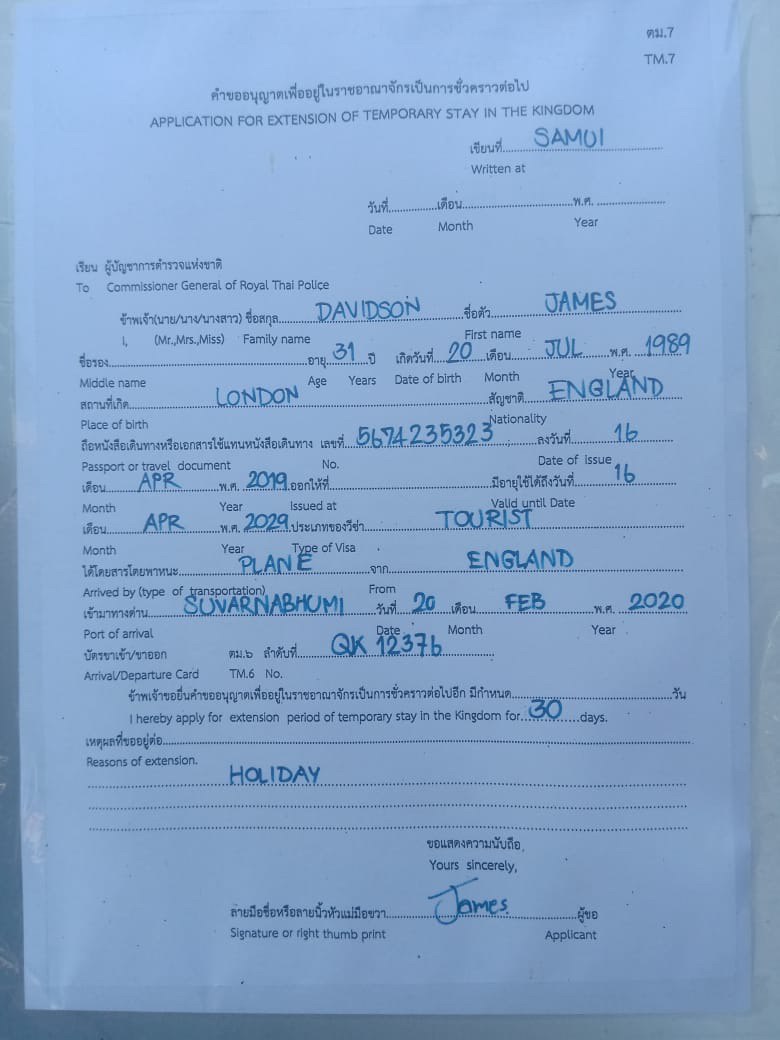 ตม.7
TM.7
คำขออนุญาตเพื่ออยู่ในราชอาณาจักรเป็นการชั่วคราวต่อไป
APPLICATION FOR EXTENSION OF TEMPORARY STAY IN THE KINGDOM
เขียนที่ SAMUI
Written at
วันที่ เดือน พ.ศ.
Date Month Year
เรียน ผู้บัญชาการตำรวจแห่งชาติ
To Commissioner General of Royal Thai Police
ข้าพเจ้า(นาย/นาง/นางสาว) ชื่อสกุล DAVIDSON ชื่อตัว JAMES
I, (Mr.,Mrs.,Miss) Family name First name
ชื่อรอง อายุ 31 ปี เกิดวันที่ 20 เดือน JUL พ.ศ. 1989
Middle name Age Years Date of birth Month Year
สถานที่เกิด LONDON สัญชาติ ENGLAND
Place of birth Nationality
ถือหนังสือเดินทางหรือเอกสารใช้แทนหนังสือเดินทาง เลขที่ 5674235323 ลงวันที่ 16
Passport or travel document No. Date of issue
เดือน APR พ.ศ. 2019 ออกให้ที่ มีอายุใช้ได้ถึงวันที่ 16
Month Year Issued at Valid until Date
เดือน APR พ.ศ. 2029 ประเภทของวีซ่า TOURIST
Month Year Type of Visa
ได้โดยสารโดยพาหนะ PLANE จาก ENGLAND
Arrived by (type of transportation) From
เข้ามาทางด่าน SUVARNABHUMI วันที่ 20 เดือน FEB พ.ศ. 2020
Port of arrival Date Month Year
บัตรขาเข้า/ขาออก ตม.๖ ลำดับที่ QK 12376
Arrival/Departure Card TM.6 No.
ข้าพเจ้าขอยื่นคำขออนุญาตเพื่ออยู่ในราชอาณาจักรเป็นการชั่วคราวต่อไปอีก มีกำหนด วัน
I hereby apply for extension period of temporary stay in the Kingdom for 30 days.
เหตุผลที่ขออยู่ต่อ
Reasons of extension.
HOLIDAY
ขอแสดงความนับถือ
Yours sincerely,
ลายมือชื่อหรือลายนิ้วหัวแม่มือขวา James ผู้ขอ
Signature or right thumb print Applicant